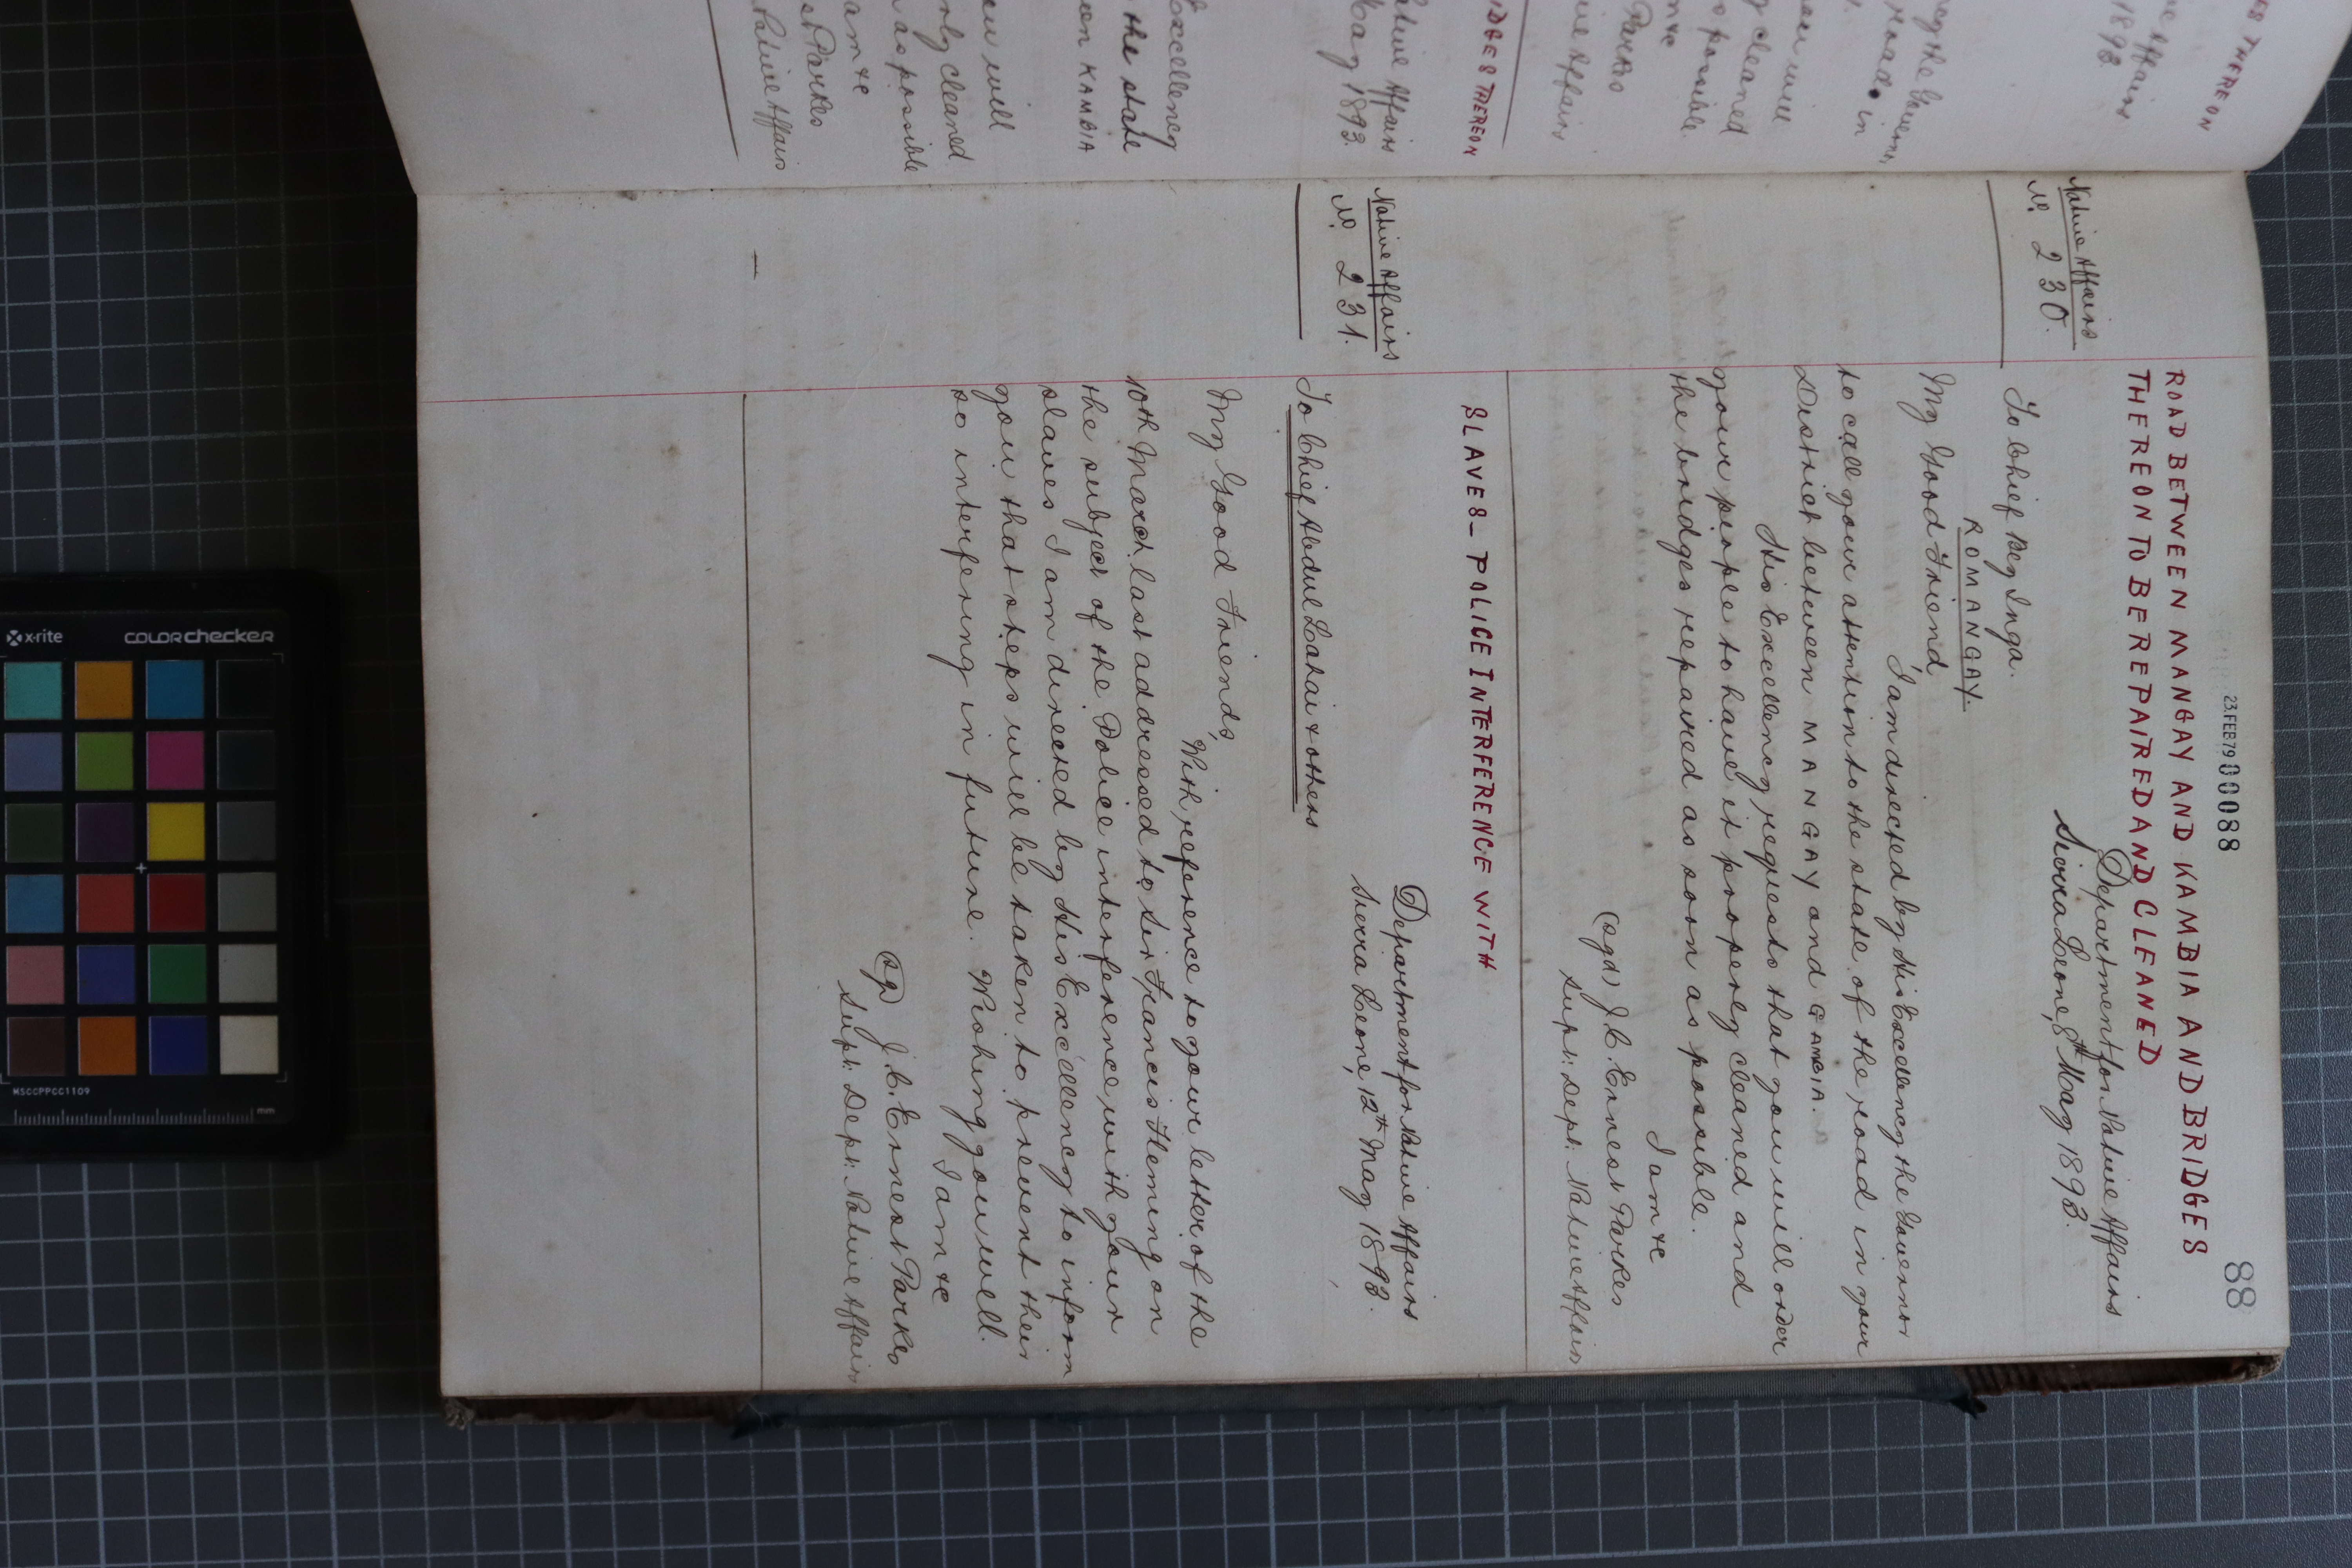 23.FEB79 00088
88
ROAD BETWEEN MANGAY AND KAMBIA AND BRIDGES
THEREON TO BE REPAIRED AND CLEANED
Native Affairs
No. 230.
Department for Native Affairs
Sierra Leone, 8th May 1893.
To Chief Bey Inga.
ROMANGAY.
My Good Friend
I am directed by His Excellency the Governor
to call your attention to the state of the road in your
District between MANGAY and GAMBIA.
His Excellency requests that you will order
your people to have it properly cleaned and
the bridges repaired as soon as possible.
I am &c
(sgd) J. C. Ernest Parkes
Supt: Dept: Native Affairs
SLAVES_ POLICE INTERFERENCE WITH
Native Affairs
No. 231.
Department for Native Affairs
Sierra Leone, 12th May 1893.
To Chief Abdul Lahai & others
My Good Friends,
With reference to your letter of the
10th March last addressed to Sir Francis Fleming on
the subject of the Police interference with your
slaves I am directed by His Excellency to inform
you that steps will be taken to prevent their
so interfering in future. Wishing you well.
I am &c
(sg) J. C. Ernest Parkes
Supt: Dept: Native Affairs
ES THERE ON
ve Affairs
1893
ng the Governor
road in
you will
y cleaned
s possible
m &c
Parkes
ive Affairs
IDGES THEREON
ative Affairs
May 1893.
Excellency
the state
een KAMBIA
ou will
nly cleaned
n as possible
am &c
st Parkes
Native Affairs
x-rite
colorchecker
MSCCPPCC1109
mm